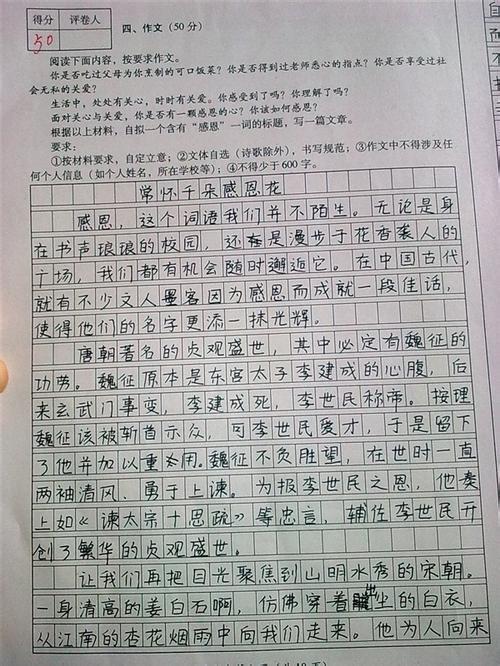 得分 评卷人
50
四、作文(50分)
阅读下面内容,按要求作文。
你是否吃过父母为你烹制的可口饭菜?你是否得到过老师悉心的指点?你是否享受过社
会无私的关爱?
生活中,处处有关心,时时有关爱。你感受到了吗?你理解了吗?
面对关心与关爱,你是否有一颗感恩的心?你该如何感恩?
根据以上材料,自拟一个含有“感恩”一词的标题,写一篇文章。
要求:
①按材料要求,自定立意;②文体自选(诗歌除外),书写规范;③作文中不得涉及任
何个人信息(如个人姓名,所在学校等);④不得少于600字。
常怀千朵感恩花
感恩,这个词语我们并不陌生。无论是身
在书声琅琅的校园,还是漫步于花香袭人的
广场,我们都有机会随时邂逅它。在中国古代,
就有不少文人墨客因为感恩而成就一段佳话,
使得他们的名字更添一抹光辉。
唐朝著名的贞观盛世,其中必定有魏征的
功劳。魏征原本是东宫太子李建成的心腹,后
来玄武门事变,李建成死,李世民称帝。按理
魏征该被斩首示众,可李世民爱才,于是留下
了他并加以重用。魏征不负胜望,在世时一直
两袖清风、勇于上谏。为报李世民之恩,他奏
上如《谏太宗十思疏》等忠言,辅佐李世民开
创了繁华的贞观盛世。
让我们再把目光聚焦到山明水秀的宋朝。
一身清高的姜白石啊,仿佛穿着出尘的白衣,
从江南的杏花烟雨中向我们走来。他为人向来